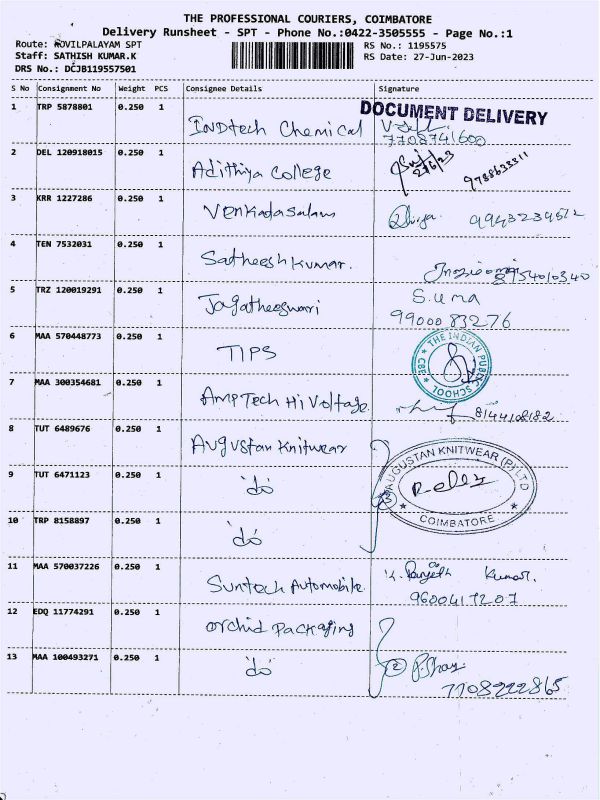 THE PROFESSIONAL COURIERS, COIMBATORE
Delivery Runsheet - SPT - Phone No.:0422-3505555 - Page No.:1
Route: KOVILPALAYAM SPT RS No.: 1195575
Staff: SATHISH KUMAR.K RS Date: 27-Jun-2023
DRS No.: DCJB119557501
S No Consignment No Weight PCS Consignee Details Signature
DOCUMENT DELIVERY
1 TRP 5878801 0.250 1 INDtech Chemical
7708741600
2 DEL 120918015 0.250 1 Adithiya College 9788633311
3 KRR 1227286 0.250 1 Venkadasalam 9943239512
4 TEN 7532031 0.250 1 Satheesh Kumar.
5 TRZ 120019291 0.250 1 Jagatheeswari S.uma
9900083276
6 MAA 570448773 0.250 1 TIPS THE INDIAN PUBLIC SCHOOL ★ CBE ★
7 MAA 300354681 0.250 1 Amp Tech Hi Voltage. 8144108182
8 TUT 6489676 0.250 1 Augustan Knitwear
9 TUT 6471123 0.250 1 "do" AUGUSTAN KNITWEAR (P) LTD ★ COIMBATORE ★
3
10 TRP 8158897 0.250 1 "do"
11 MAA 570037226 0.250 1 Suntech Automobile. K. Ranjith Kumar.
9600417207
12 EDQ 11774291 0.250 1 Orchid Packaging
13 MAA 100493271 0.250 1 "do" 2
7708222865